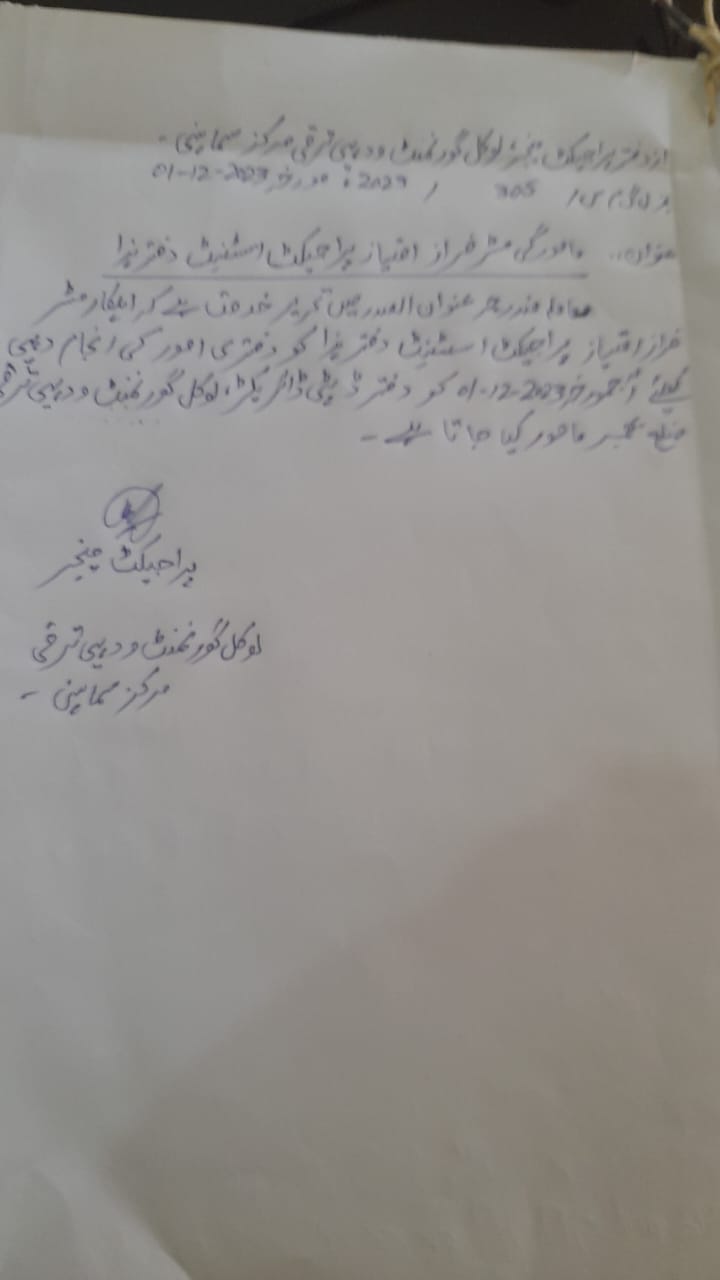 از دفتر پراجیکٹ منیجر لوکل گورنمنٹ و دیہی ترقی مرکز سماہنی -
305 / 2023 ؛ مورخہ 01-12-2023
عنوان:۔ مامورگی مسٹر فراز امتیاز پراجیکٹ اسسٹنٹ دفتر ہذا
معاملہ مندرجہ عنوان الصدر میں تحریر خدمت ہے کہ اہلکار مسٹر
فراز امتیاز پراجیکٹ اسسٹنٹ دفتر ہذا کو دفتری امور کی انجام دہی
کیلئے آج مورخہ 01-12-2023 کو دفتر ڈپٹی ڈائریکٹر، لوکل گورنمنٹ و دیہی ترقی
ضلع بھمبر مامور کیا جاتا ہے -
پراجیکٹ منیجر
لوکل گورنمنٹ و دیہی ترقی
مرکز سماہنی -